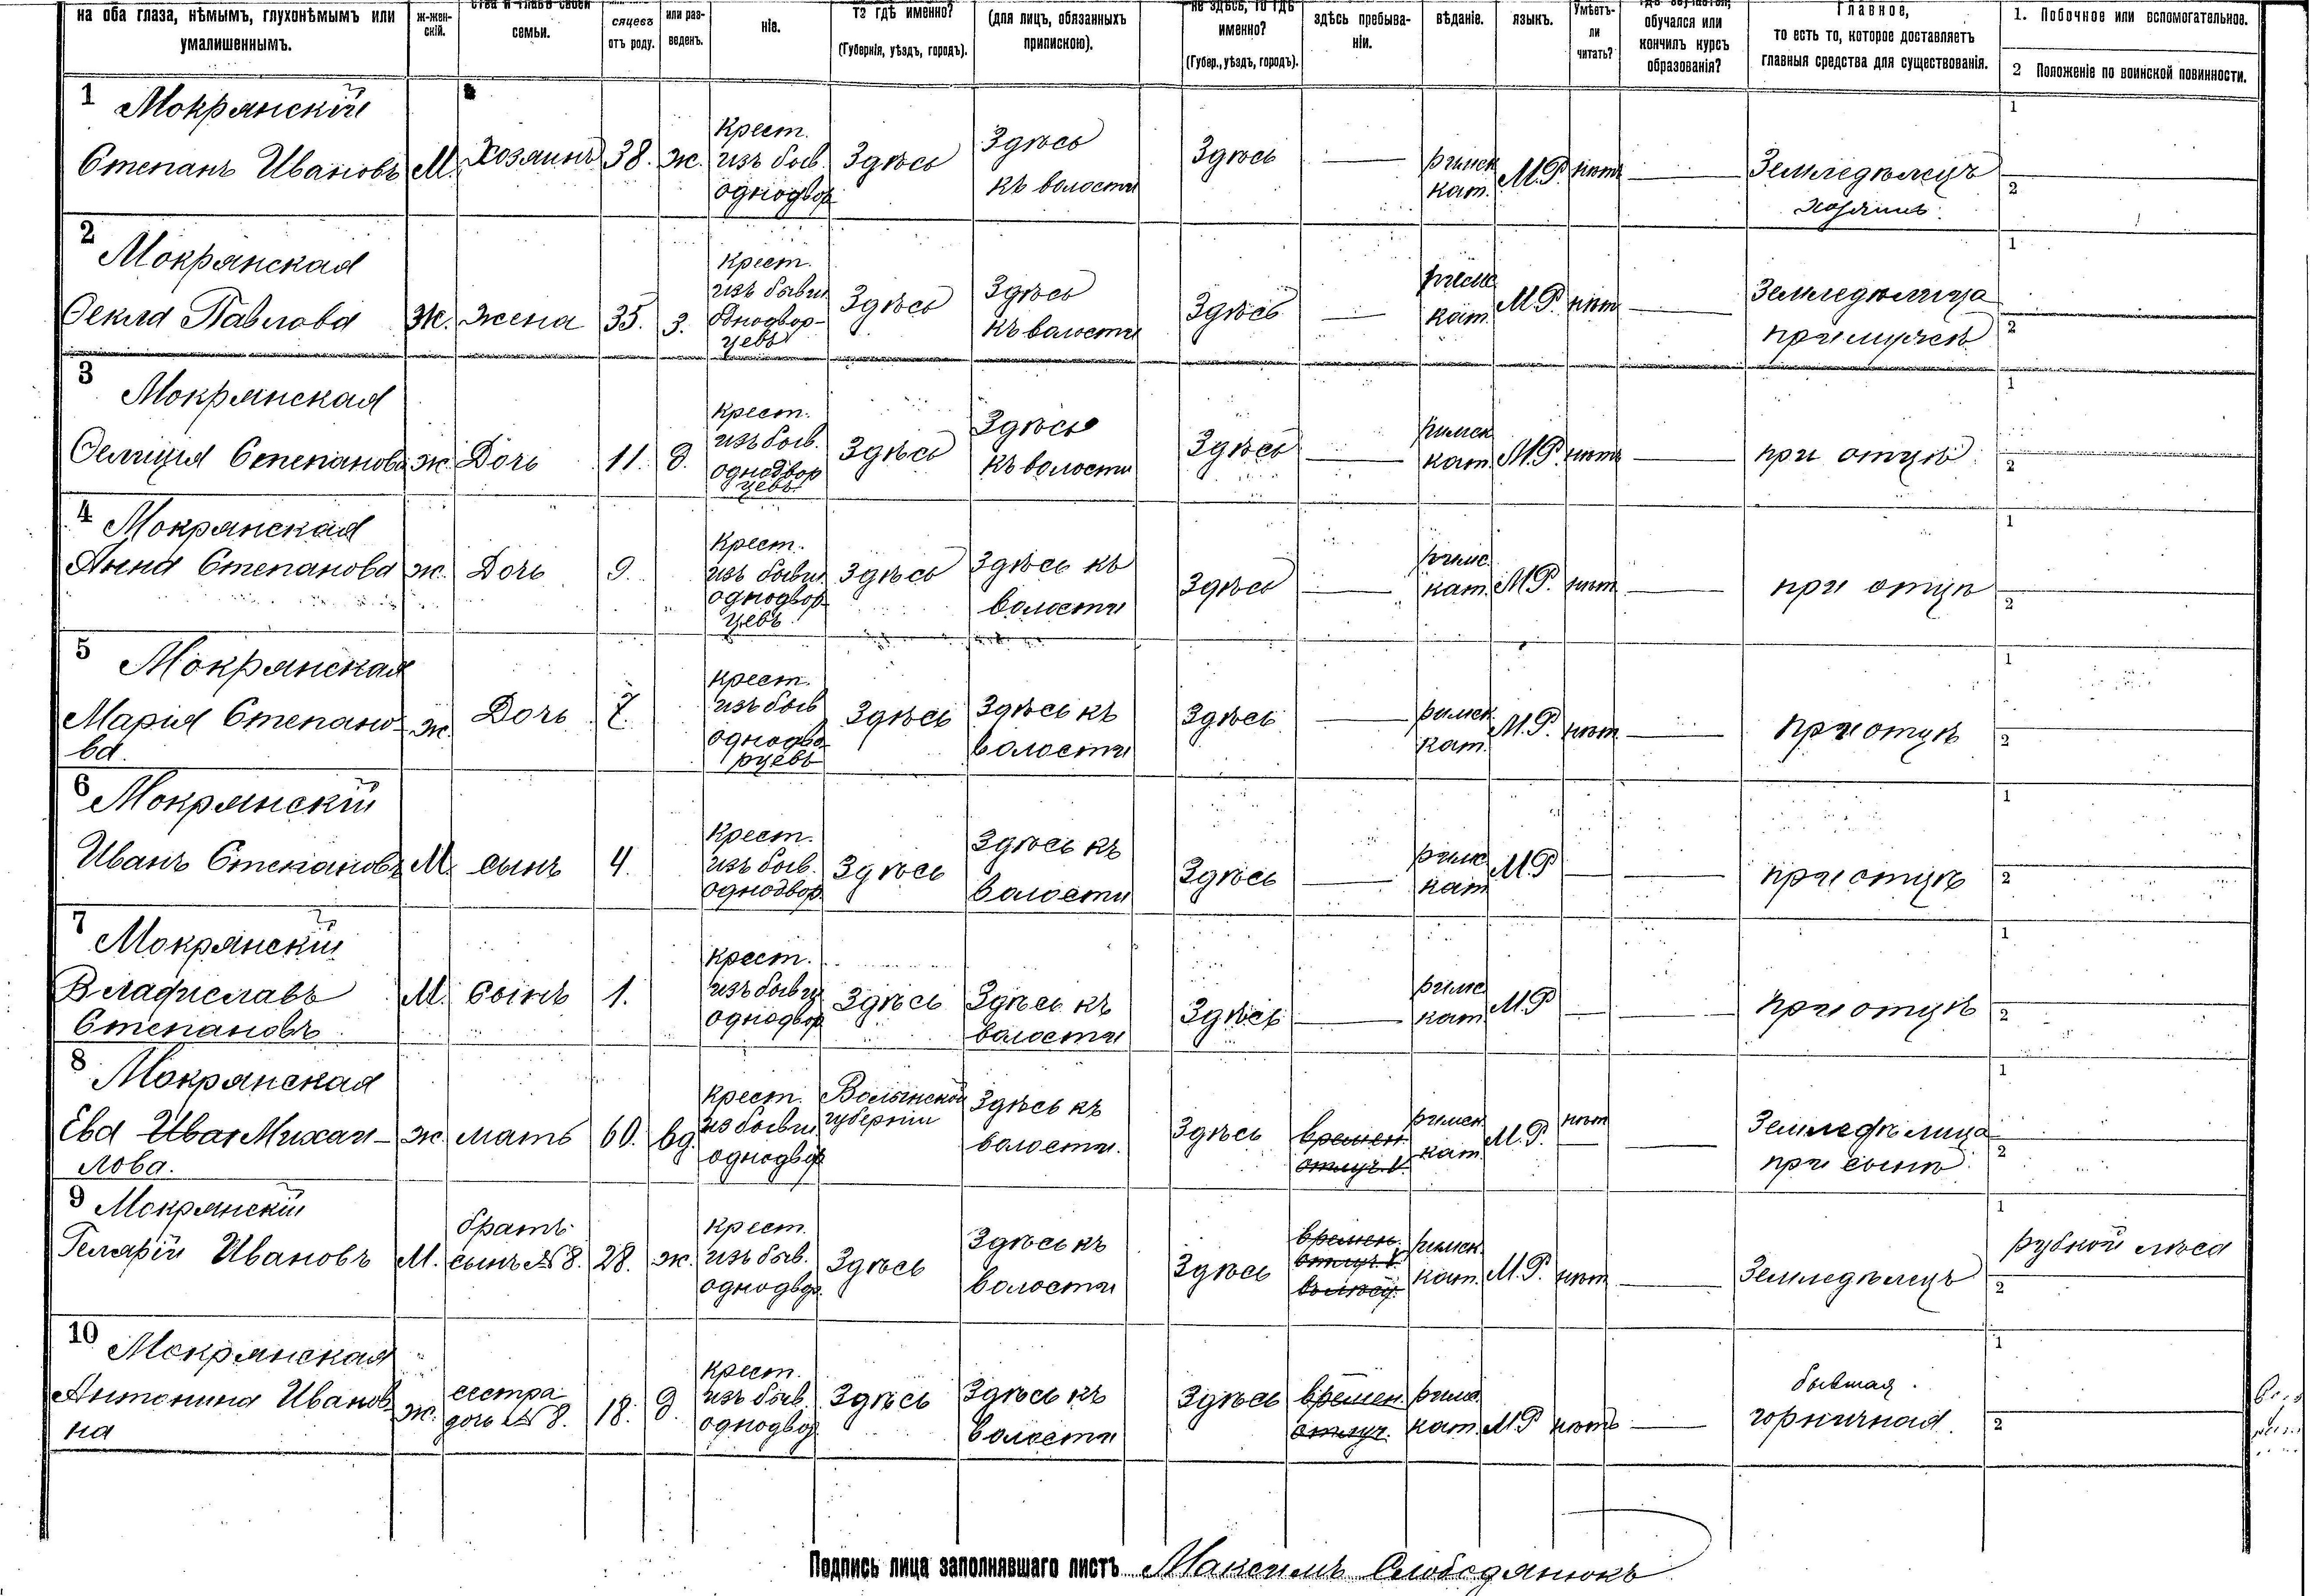 на оба глаза, нѣмымъ, глухонѣмымъ или
умалишеннымъ.
ж-жен-
скій.
семьи.
сяцевъ
отъ роду.
или раз-
веденъ.
ніе.
то гдѣ именно?
(Губернія, уѣздъ, городъ).
(для лицъ, обязанныхъ
припискою).
именно?
(Губер., уѣздъ, городъ).
здѣсь пребыва-
ніи.
вѣданіе.
языкъ.
Умѣетъ-
ли
читать?
обучался или
кончилъ курсъ
образованія?
Главное,
то есть то, которое доставляетъ
главныя средства для существованія.
1. Побочное или вспомогательное.
2 Положеніе по воинской повинности.
1 Мокрянскій
Степанъ Ивановъ М. Хозяинъ 38. ж. Крест. изъ быв. однодвор Здѣсь Здѣсь къ волости Здѣсь — римск кат. М.Р. нѣтъ — Земледѣлецъ хозяинъ 1 2
2 Мокрянская
Текля Павлова ж. жена 35. з. Крест. изъ бывш однодвор- цевъ Здѣсь Здѣсь къ волости Здѣсь — римск кат. М.Р. нѣт — Земледѣлица при мужѣ 1 2
3 Мокрянская
Фелиція Степанова ж. Дочь 11. д. Крест. изъ быв. однодвор цевъ Здѣсь Здѣсь къ волости Здѣсь — римск кат. М.Р. нѣтъ — при отцѣ 1 2
4 Мокрянская
Анна Степанова ж. Дочь 9. Крест. изъ бывш однодвор цевъ Здѣсь Здѣсь къ волости Здѣсь — римс. кат. М.Р. нѣт — при отцѣ 1 2
5 Мокрянская
Марія Степано- ж. Дочь 7. Крест. изъ быв однодво рцевъ Здѣсь Здѣсь къ волости Здѣсь — римск кат. М.Р. нѣт — при отцѣ 1 2
ва.
6 Мокрянскій
Иванъ Степановъ М. сынъ 4. Крест. изъ быв. однодвор. Здѣсь Здѣсь къ волости Здѣсь — римс кат М.Р — — при отцѣ 1 2
7 Мокрянскій
Владиславъ М. Сынъ 1. Крест. изъ бывш однодвор Здѣсь Здѣсь къ волости Здѣсь — римс кат М.Р — — при отцѣ 1 2
Степановъ.
8 Мокрянская
Ева Иван Михай- ж. мать 60. вд. Крест. из бывш однодвор Волынской губерніи Здѣсь къ волости. Здѣсь времен. отлуч. V. римск кат. М.Р. нѣт — Земледѣлица при сынѣ. 1 2
лова.
9 Мокрянскій
Гилярій Ивановъ М. братъ сынъ № 8. 28. ж. Крест. изъ быв. однодвор. Здѣсь Здѣсь къ волости Здѣсь времен. отлуч. V. римск кат. М.Р. нѣт — Земледѣлецъ 1 рубкой лѣса 2
10 Мокрянская
Антонина Иванов- ж. сестра дочь № 8. 18. д. Крест. изъ быв. однодвор Здѣсь Здѣсь къ волости Здѣсь времен. отлуч. римс. кат. М.Р нѣтъ — бывшая горничная. 1 2
на
Подпись лица заполнявшаго листъ Максимъ Слободянюкъ